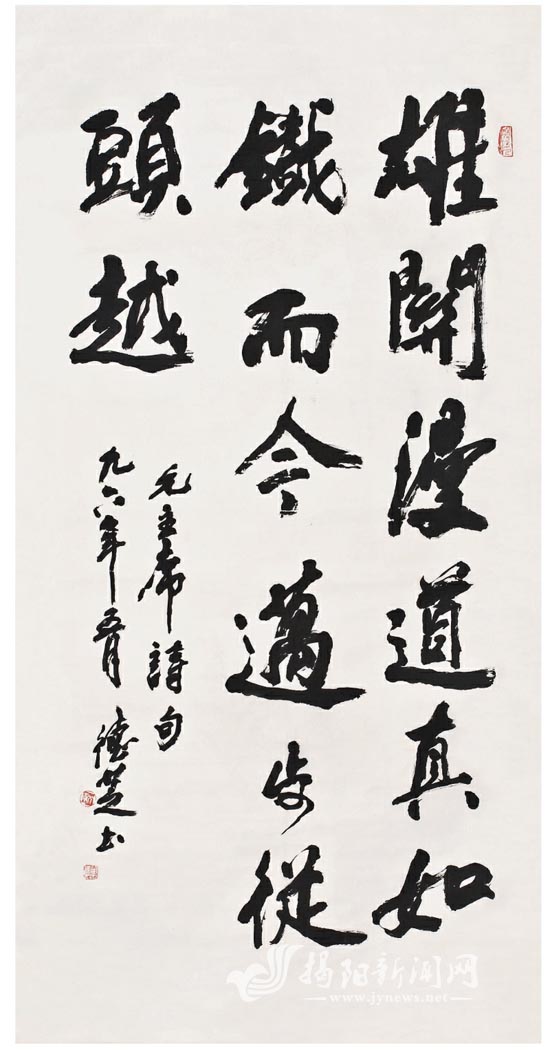 雄關漫道真如
鐵而今邁步從
頭越
毛主席詩句
九六年五月 德芝书
揭阳新闻网
www.jynews.net